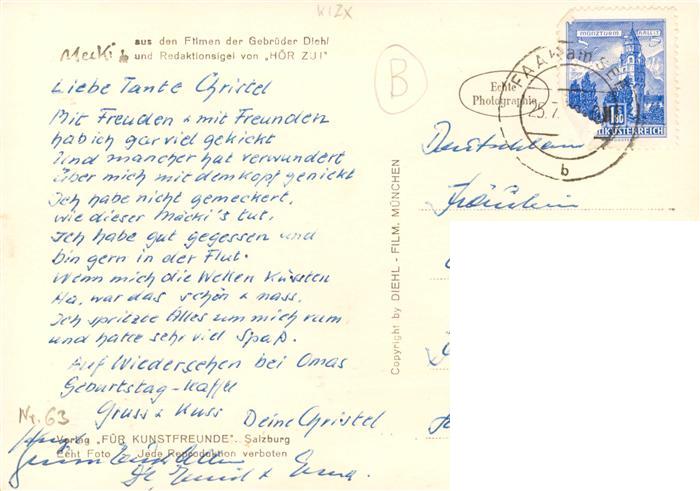 KIZX
aus den Filmen der Gebrüder Diehl
Mecki
und Redaktionsigel von „HÖR ZU!"
Liebe Tante Christel
Mit Freuden & mit Freunden
hab ich gar viel gekickt
Und mancher hat verwundert
Über mich mit dem Kopf genickt
Ich habe nicht gemeckert,
wie dieser Mäcki's tut,
Ich habe gut gegessen und
bin gern in der Flut.
Wenn mich die Wellen küssten
Ha, war das schön & nass.
Ich spritzte Alles um mich rum
und hatte sehr viel Spaß.
Auf Wiedersehen bei Omas
Geburtstag-Kaffee
Gruss & Kuss
Deine Christel
Nr. 63
Verlag „FÜR KUNSTFREUNDE". Salzburg
Echt Foto Jede Reproduktion verboten
& Erna.
Copyright by DIEHL - FILM, MÜNCHEN
B
Echte
Photographie
FAAK am SEE
25.7.
b
MÜNZTURM HALL i. T.
S 1.80
REPUBLIK ÖSTERREICH
Deutschland
Fräulein